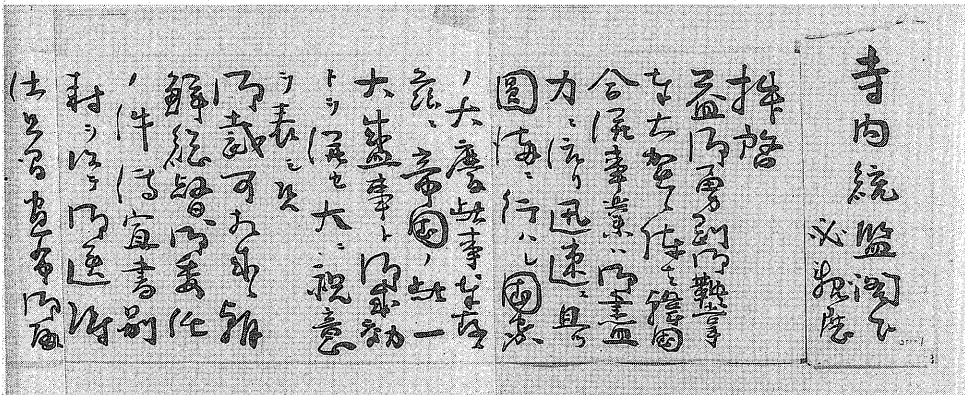 寺内統監閣下
必親展
拝啓
益御勇剛御鞅掌
奉大賀候陳者韓国
合併事業ハ御盡
力ニ依リ迅速ニ且ツ
圓満ニ行ハレ国家
ノ大慶此事
茲ニ帝国ノ此一
大盛事ト御成効
トヲ併セ大ニ祝意
ヲ表シ候
御裁可相成候朝
鮮総督御委任
ノ件待宣書別
封ヲ以テ御送附
仕候間